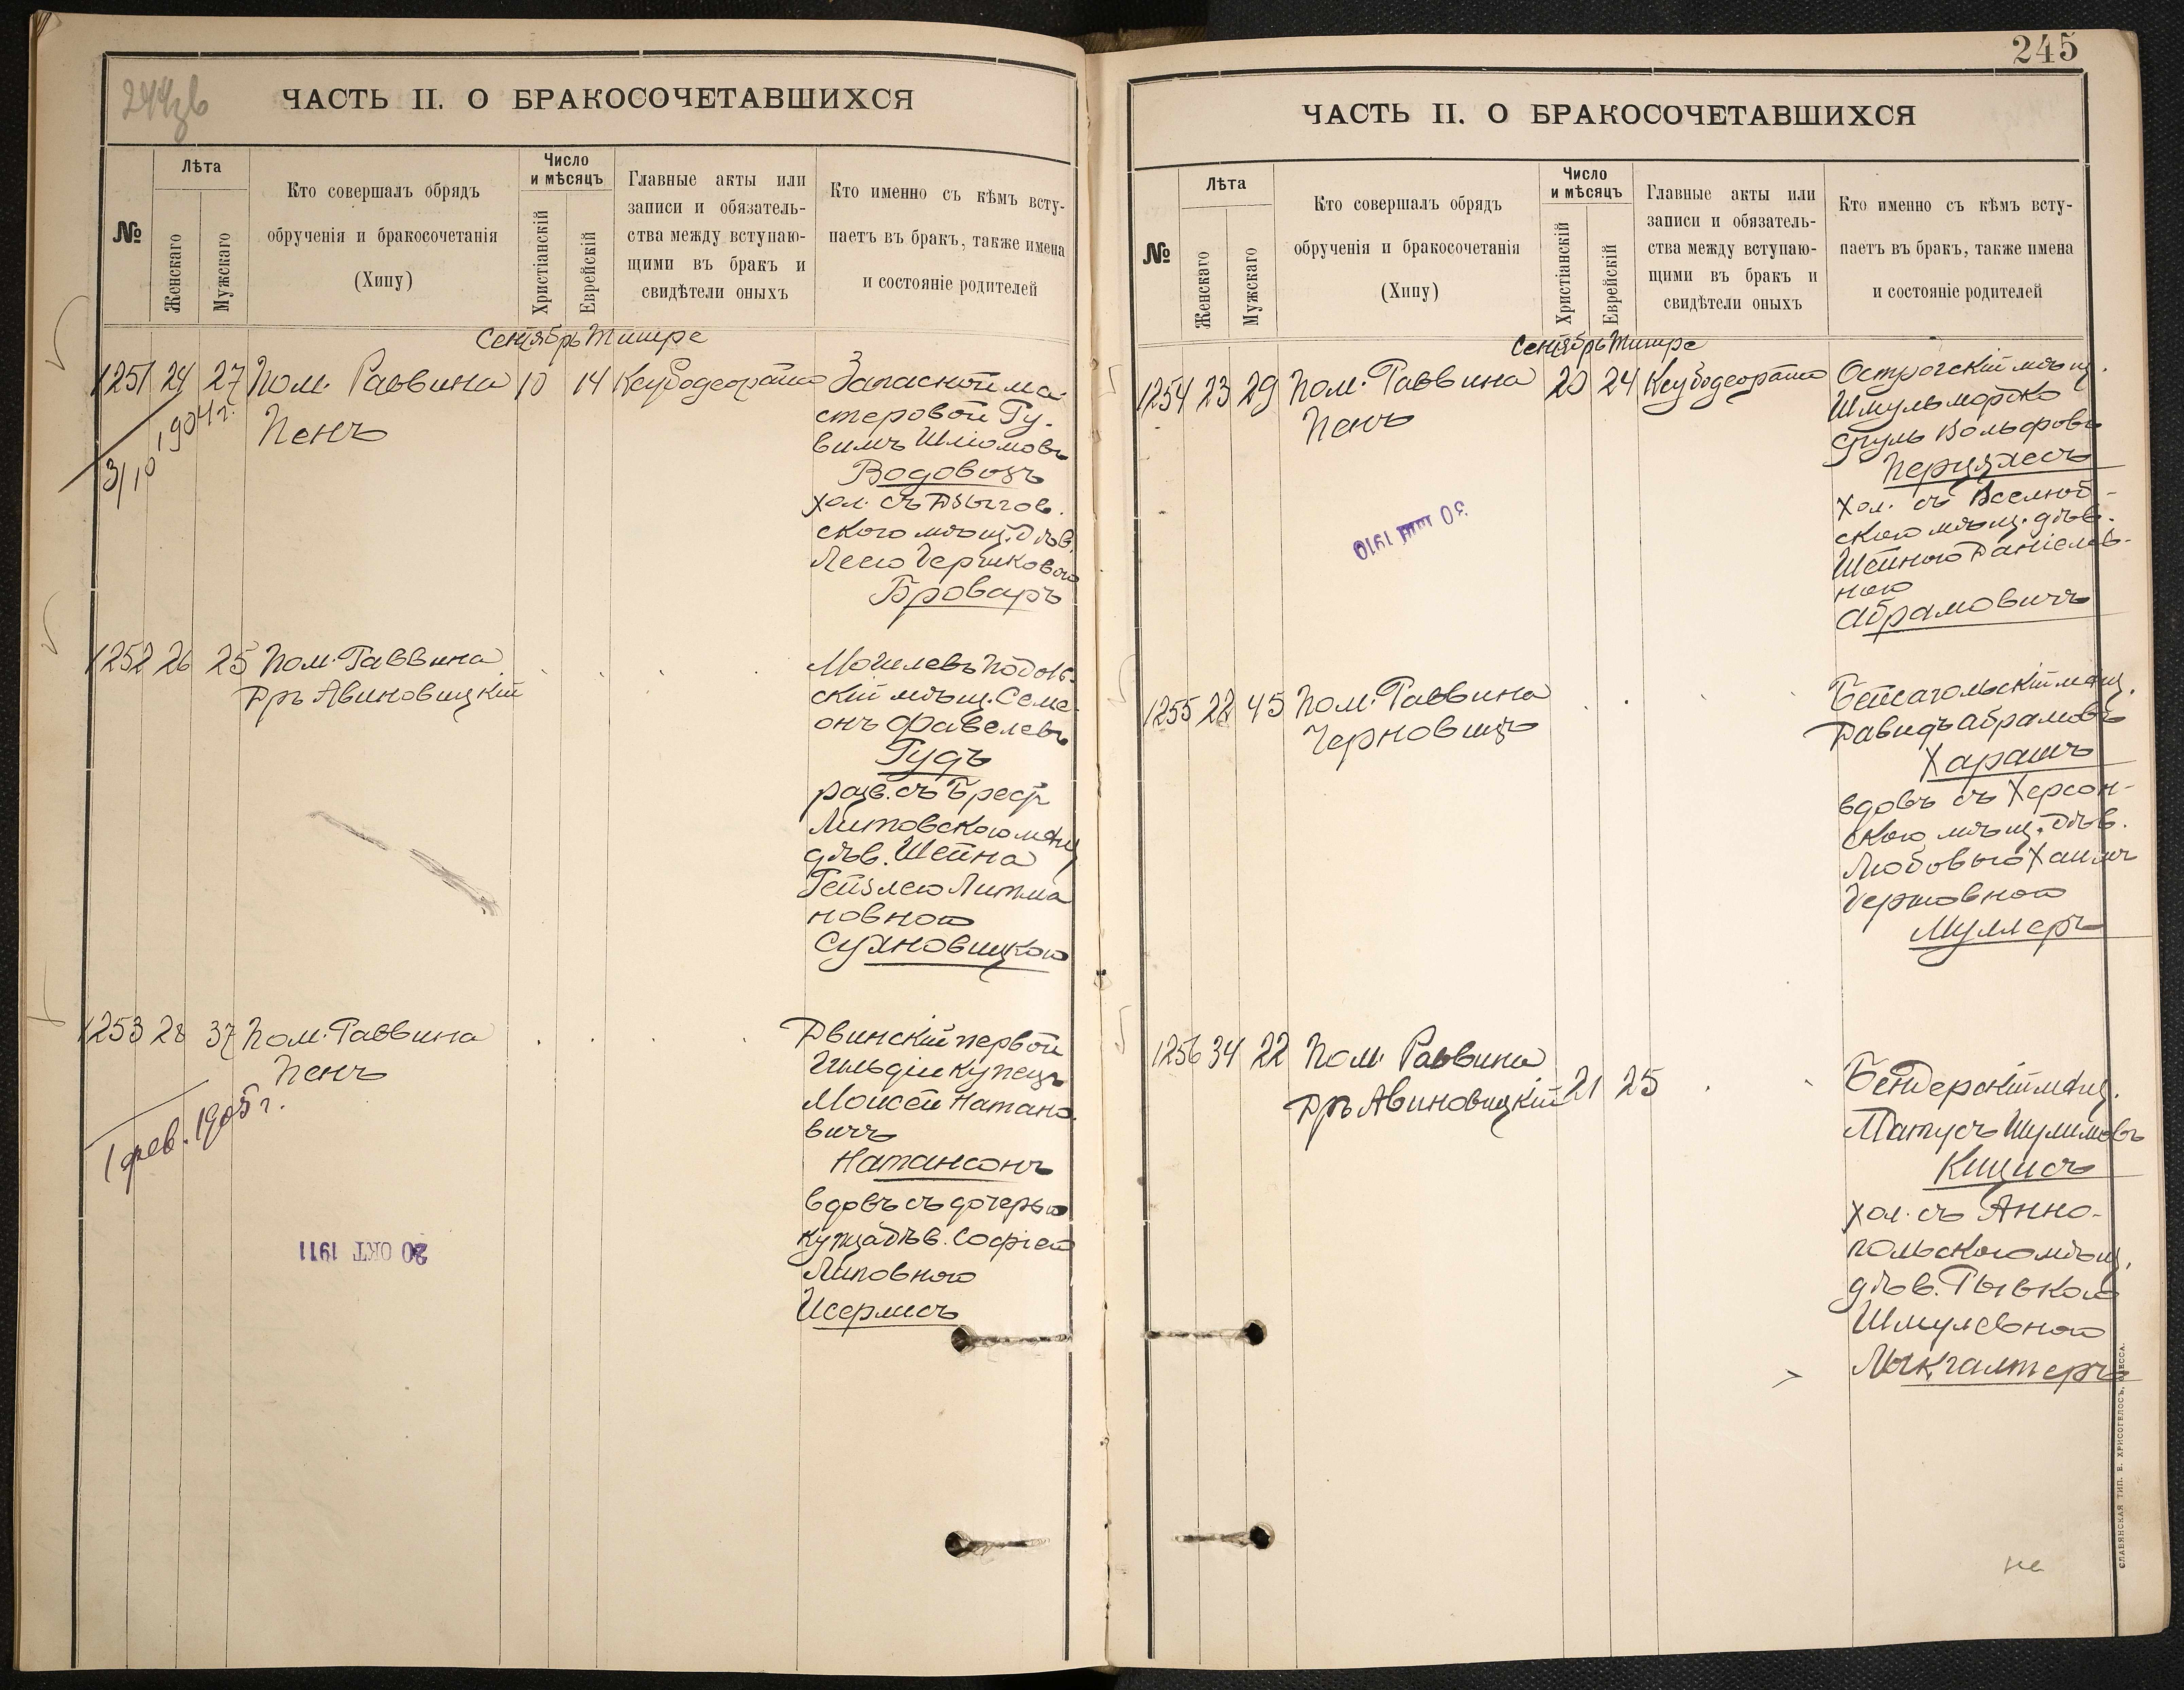 244зв
ЧАСТЬ II. О БРАКОСОЧЕТАВШИХСЯ
№
Лѣта
Женскаго
Мужскаго
Кто совершалъ обрядъ
обрученія и бракосочетанія
(Хипу)
Число
и мѣсяцъ
Христіанскій
Еврейскій
Главные акты или
записи и обязатель-
ства между вступаю-
щими въ бракъ и
свидѣтели оныхъ
Кто именно съ кѣмъ всту-
паетъ въ бракъ, также имена
и состояніе родителей
Сентябрь Тишре
1251 24 27 Пом. Раввина 10 14
Пенъ
1904 г.
3/10
Запасной ма-
стеровой Ру-
вимъ Шліомовъ
Водовозъ
хол. съ
ского мѣщ. дѣв.
Лею Гершковою
Броваръ
1252 26 25 Пом. Раввина
Дръ Авиновицкій
Могилевъ Подоль-
скій мѣщ. Семе-
онъ Файвелевъ
Гудъ
разв. съ Брест
Литовскою мѣщ
дѣв. Шейна
Рейзлею Литма
новною
Сухновицкою
1253 28 37 Пом. Раввина
Пенъ
1 фев. 1905 г.
Двинскій первой
Гильдіи купецъ
Моисей Натано-
вичъ
Натансонъ
вдовъ съ дочерью
купца дѣв. Софіею
Липовною
Исерлисъ
20 ОКТ 1911
245
ЧАСТЬ II. О БРАКОСОЧЕТАВШИХСЯ
№
Лѣта
Женскаго
Мужскаго
Кто совершалъ обрядъ
обрученія и бракосочетанія
(Хипу)
Число
и мѣсяцъ
Христіанскій
Еврейскій
Главные акты или
записи и обязатель-
ства между вступаю-
щими въ бракъ и
свидѣтели оныхъ
Кто именно съ кѣмъ всту-
паетъ въ бракъ, также имена
и состояніе родителей
Сентябрь Тишре
1254 23 29 Пом. Раввина 20 24
Пенъ
30 1910
Острогскій мѣщ.
Шмуль Мордко
Сруль Вольфовъ
хол. съ Вселюб-
скою мѣщ. дѣв.
Шейною Даніелов-
ною
Абрамовичъ
1255 22 45 Пом. Раввина
Черновицъ
Бейсагольскій мѣщ.
Давидъ Абрамовъ
Харашъ
вдовъ съ Херсон-
скою мѣщ. дѣв.
Любовью Хаимъ
Гершовною
Муллеръ
1256 34 22 Пом. Раввина
Дръ Авиновицкій 21 25
Бендерскій мѣщ.
Матусъ Шулимовъ
Кицисъ
хол. съ Анно-
польскою мѣщ.
дѣв. Рывкою
Шмулевною
СЛАВЯНСКАЯ ТИП. Е. ХРИСОГЕЛОСЪ, ОДЕССА.